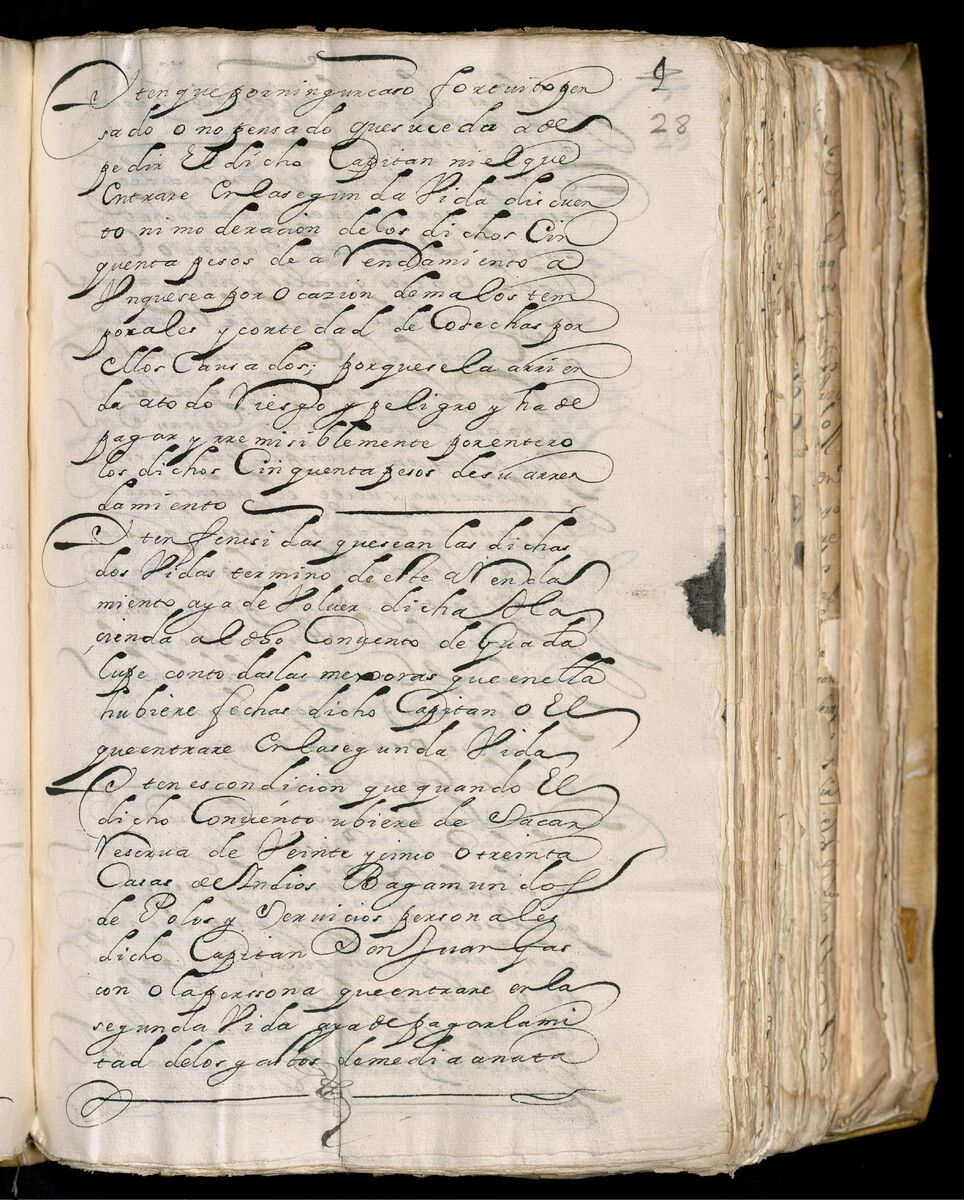 1
28
Yten que por ningun caso fortuito pen
sado o no pensado que suceda a de
pedir El dicho Capitan ni el que
Entrare En la segunda Vida discuen
to ni moderacion de los dichos Cin
quenta pesos de aRendamiento a
Vnque sea por ocazion de malos tem
porales y cortedad de Cosechas por
ellos Causados; porque se la arrien
da a todo Riesgo y peligro y ha de
pagar yrremisiblemente por entero
los dichos Cinquenta pesos de su arren
damiento
Yten fenesidas que sean las dichas
dos Vidas termino de este aRenda
miento aya de Volver dicha Ha
çienda al dho Convento de Guada
lupe con todas las mexoras que en ella
hubiere fechas dicho Capitan o El
que entrare En la segunda Vida
Yten es condicion que quando El
dicho Convento ubiere de Sacar
Reserva de Veinte y cinco o treinta
Casas de Indios Bagamundos
de Polos y Servicios personales
dicho Capitan Don Juan Gas
con o la perssona que entrare en la
segunda Vida aya de pagar la mi
tad de los gastos de media anata